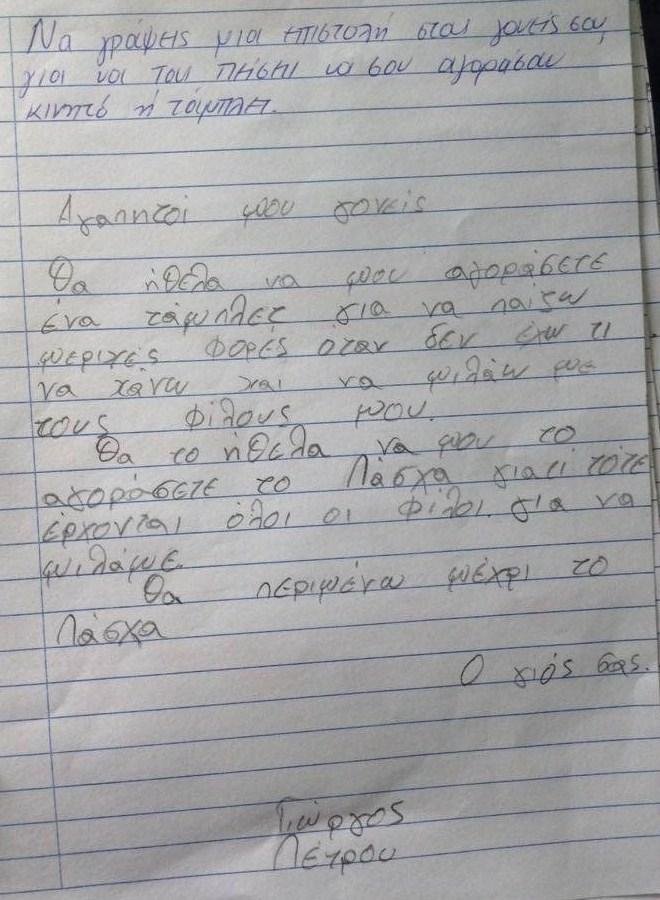 Να γράψεις μια επιστολή στους γονείς σου
για να τους πείσεις να σου αγοράσουν
κινητό ή τάμπλετ.
Αγαπητοί μου γονείς
Θα ήθελα να μου αγοράσετε
ένα τάμπλετ για να παίζω
μερικές φορές όταν δεν έχω τι
να κάνω και να μιλάω με
τους φίλους μου.
Θα το ήθελα να μου το
αγοράσετε το Πάσχα γιατί τότε
έρχονται όλοι οι φίλοι για να
μιλάμε.
Θα περιμένω μέχρι το
Πάσχα
Ο γιός σας.
Γιώργος
Πέτρου